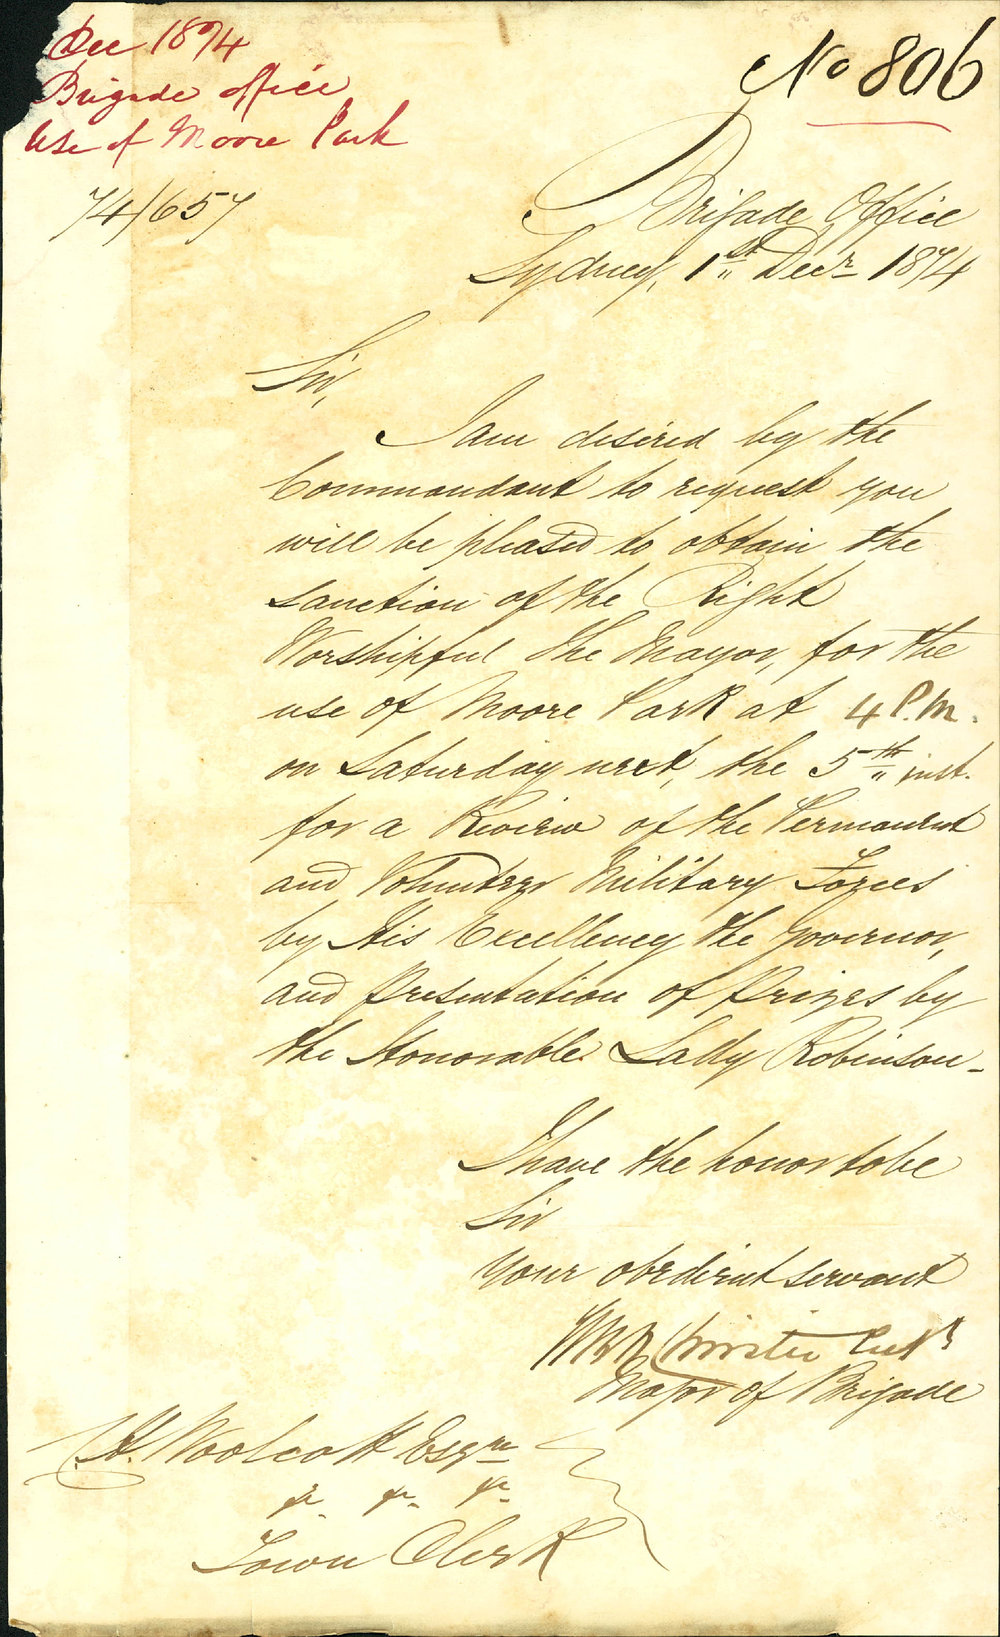 Dec 1874
Brigade office
Use of Moore Park
74/657
No 806
Brigade Office
Sydney, 1st Decr 1874
Sir,
I am desired by the
Commandant to request you
will be pleased to obtain the
sanction of the Right
Worshipful the Mayor, for the
use of Moore Park at 4 P.M.
on Saturday next, the 5th inst.
for a Review of the Permanent
and Volunteer Military Forces
by His Excellency the Governor,
and Presentation of Prizes by
the Honorable Lady Robinson -
I have the honor to be
Sir
Your obedient servant
Major of Brigade
Woolcott Esqre
&c. &c. &c.
Town Clerk